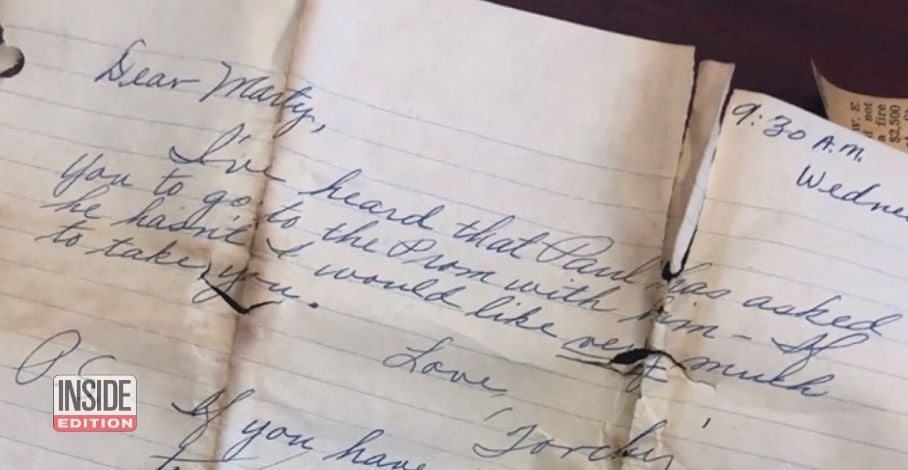 9:30 A.M.
Wedne
Dear Marty,
I've heard that Paul has asked
you to go to the Prom with him - If
he hasn't I would like very much
to take you.
Love,
"Torchy"
P.S.
If you have
W. E.
not
a fire
$2,500
INSIDE
EDITION